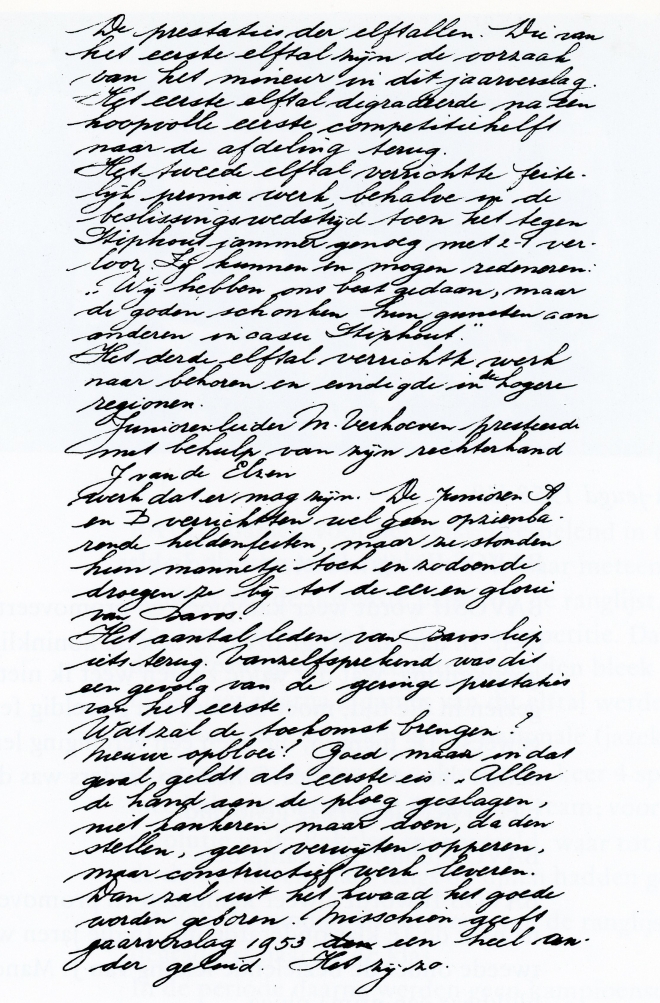 De prestaties der elftallen. Die van
het eerste elftal zijn de oorzaak
van het mineur in dit jaarverslag.
Het eerste elftal degradeerde na een
hoopvolle eerste competitiehelft
naar de afdeling terug.
Het tweede elftal verrichtte feite-
lijk prima werk, behalve in de
beslissingswedstrijd toen het tegen
Stiphout jammer genoeg met 2-1 ver-
loor. Zij kunnen en mogen redeneren:
„Wij hebben ons best gedaan, maar
de goden schonken hun gunsten aan
anderen in casu Stiphout."
Het derde elftal verrichtte werk
naar behoren en eindigde in de hogere
regionen.
Juniorenleider M. Verhoeven presteerde
met behulp van zijn rechterhand
J van de Elzen
werk dat er mag zijn. De Junioren A
en B verrichtten wel geen opzienba-
rende heldenfeiten, maar ze stonden
hun mannetje toch en zodoende
droegen ze bij tot de eer en glorie
van Bavos!
Het aantal leden van Bavos liep
iets terug. Vanzelfsprekend was dit
een gevolg van de geringe prestatis
van het eerste.
Wat zal de toekomst brengen?
Nieuwe opbloei? Goed maar in dat
geval geldt als eerste eis „Allen
de hand aan de ploeg geslagen,
niet kankeren maar doen, daden
stellen, geen verwijten opperen,
maar constructief werk leveren.
Dan zal uit het kwaad het goede
worden geboren." Misschien geeft
jaarverslag 1953 een heel an-
der geluid. Het zij zo.